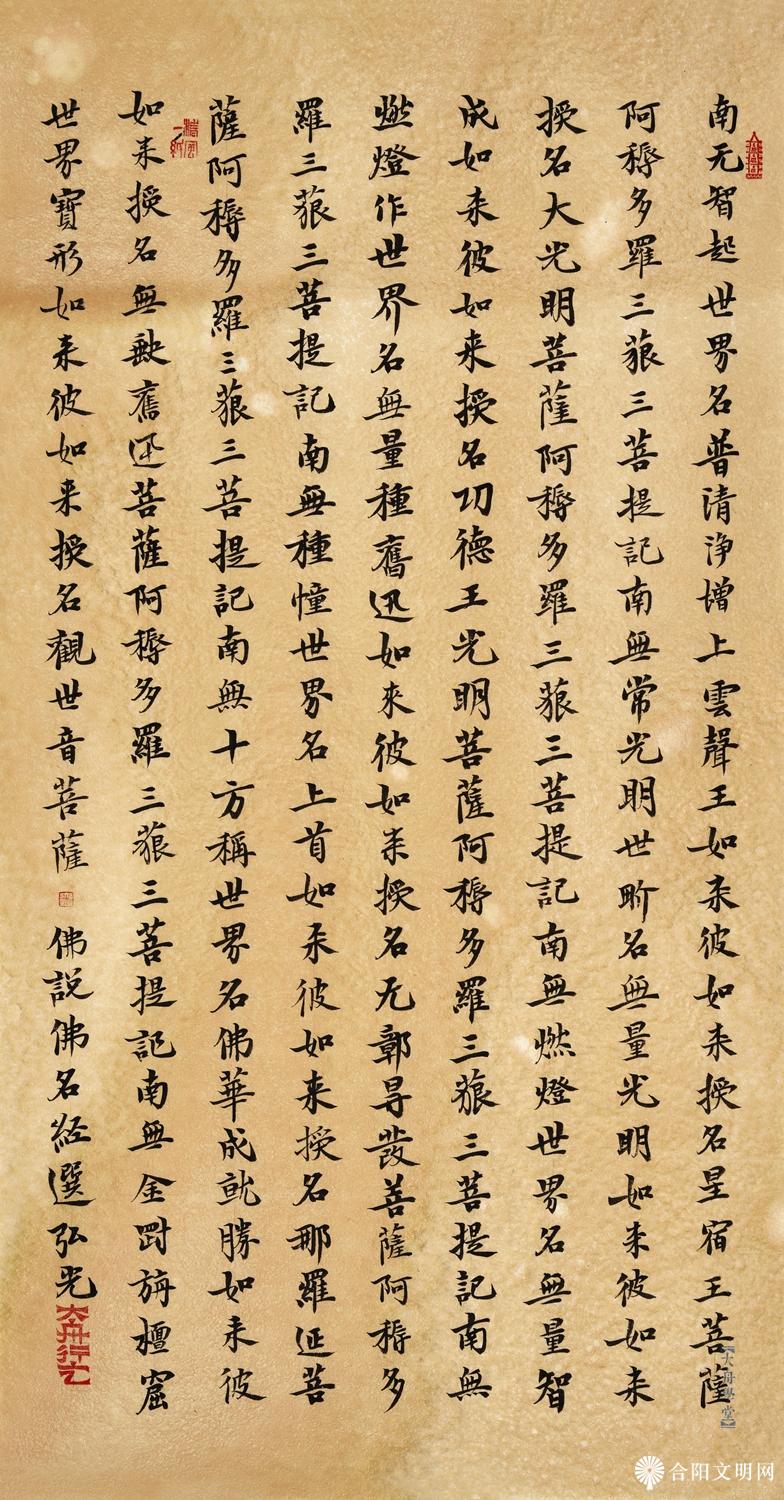 南无智起世界名普清浄增上雲聲王如来彼如来授名星宿王菩薩
阿耨多羅三藐三菩提記南無常光明世界名無量光明如来彼如来
授名大光明菩薩阿耨多羅三藐三菩提記南無燃燈世界名無量智
成如来彼如来授名功德王光明菩薩阿耨多羅三藐三菩提記南無
燃燈作世界名無量種奮迅如來彼如来授名无鄣导發菩薩阿耨多
羅三藐三菩提記南無種幢世界名上首如来彼如来授名那羅延菩
薩阿耨多羅三藐三菩提記南無十方稱世界名佛華成就勝如来彼
如来授名無畏奮迅菩薩阿耨多羅三藐三菩提記南無金剛旃檀窟
世界寶形如来彼如来授名觀世音菩薩
佛説佛名経選弘光
大舟行之
【大舟學堂】
合阳文明网